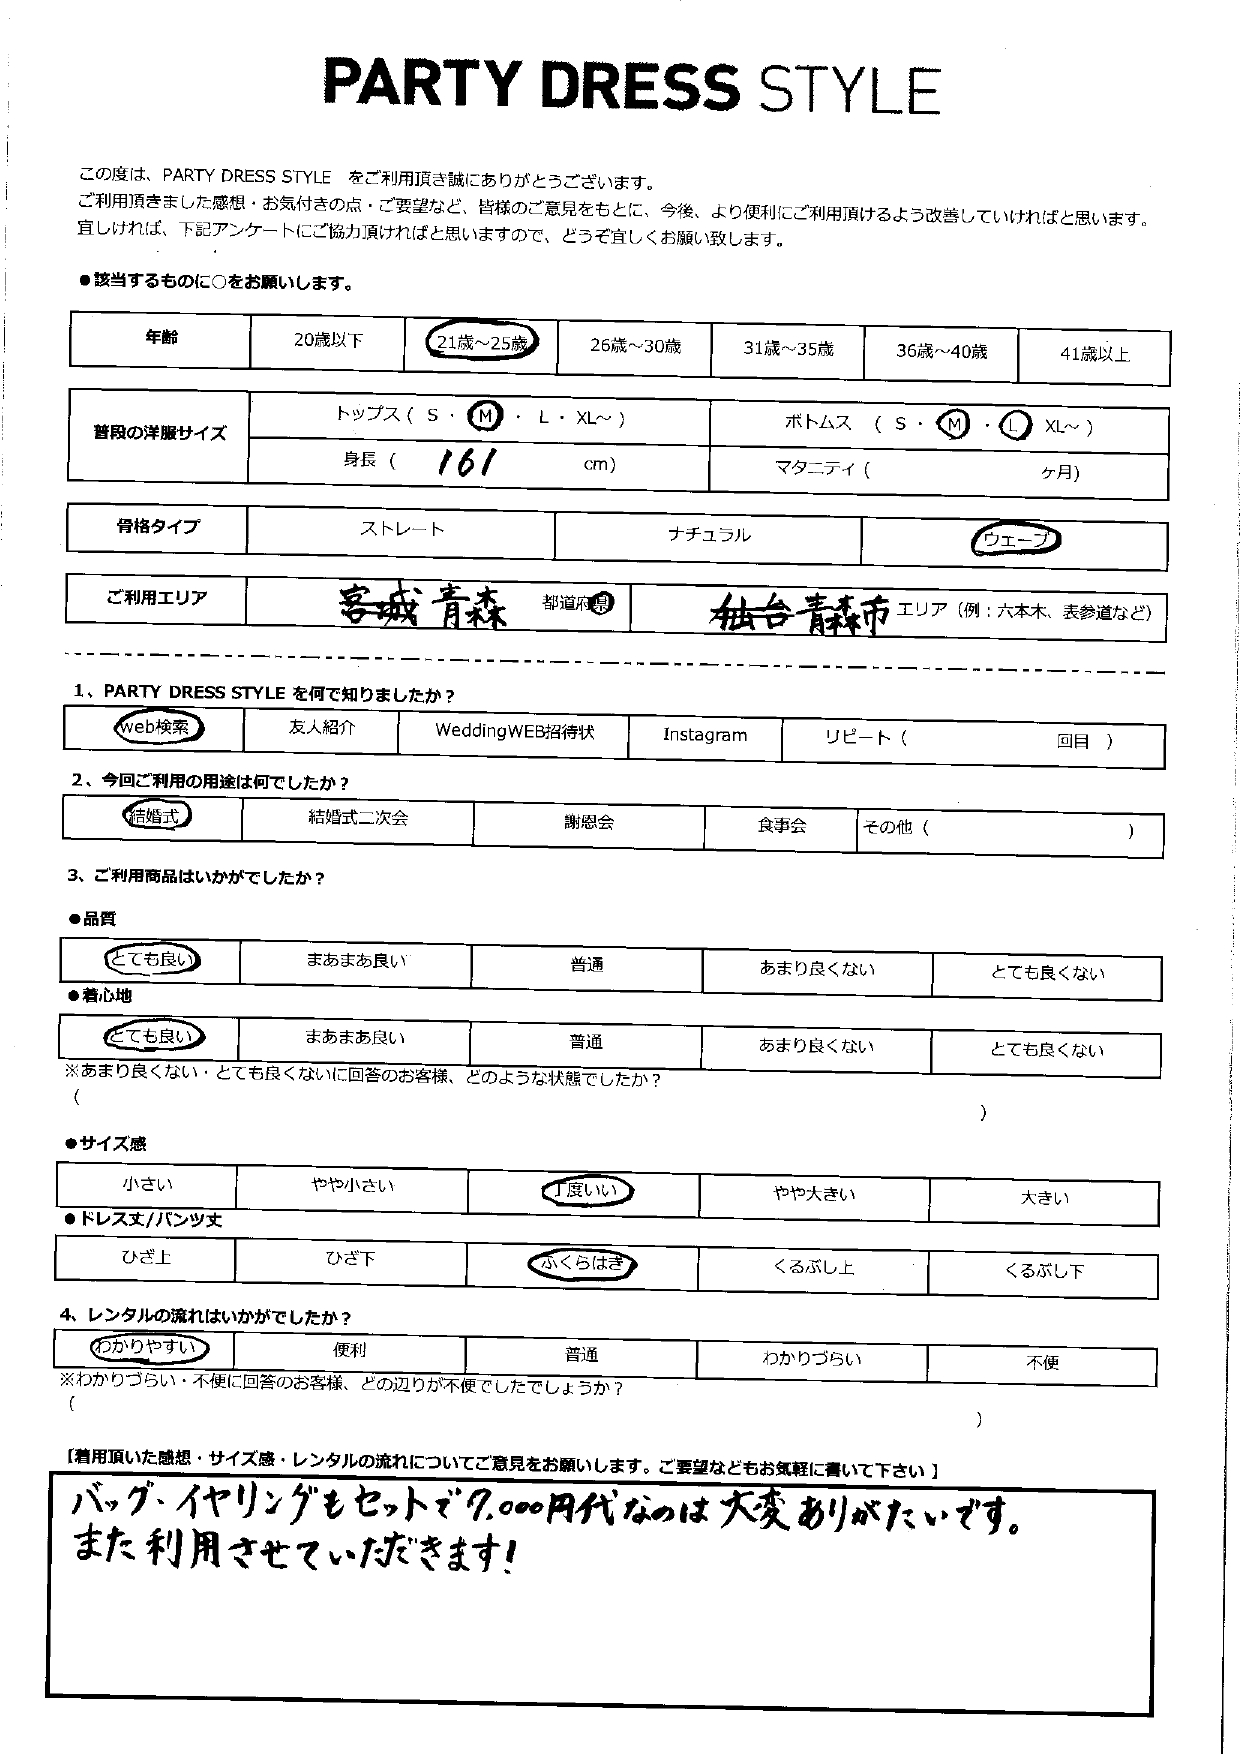 PARTY DRESS STYLE
この度は、PARTY DRESS STYLE をご利用頂き誠にありがとうございます。
ご利用頂きました感想・お気付きの点・ご要望など、皆様のご意見をもとに、今後、より便利にご利用頂けるよう改善していければと思います。
宜しければ、下記アンケートにご協力頂ければと思いますので、どうぞ宜しくお願い致します。
●該当するものに○をお願いします。
年齢 20歳以下 21歳～25歳 26歳～30歳 31歳～35歳 36歳～40歳 41歳以上
普段の洋服サイズ トップス ( S ・ M ・ L ・ XL～ ) ボトムス ( S ・ M ・ L XL～ )
身長 ( 161 cm) マタニティ ( ヶ月)
骨格タイプ ストレート ナチュラル ウェーブ
ご利用エリア 宮城 青森 都道府県 仙台 青森市 エリア（例：六本木、表参道など）
1、PARTY DRESS STYLE を何で知りましたか？
web検索 友人紹介 WeddingWEB招待状 Instagram リピート ( 回目 )
2、今回ご利用の用途は何でしたか？
結婚式 結婚式二次会 謝恩会 食事会 その他 ( )
3、ご利用商品はいかがでしたか？
●品質
とても良い まあまあ良い 普通 あまり良くない とても良くない
●着心地
とても良い まあまあ良い 普通 あまり良くない とても良くない
※あまり良くない・とても良くないに回答のお客様、どのような状態でしたか？
( )
●サイズ感
小さい やや小さい 丁度いい やや大きい 大きい
●ドレス丈/パンツ丈
ひざ上 ひざ下 ふくらはぎ くるぶし上 くるぶし下
4、レンタルの流れはいかがでしたか？
わかりやすい 便利 普通 わかりづらい 不便
※わかりづらい・不便に回答のお客様、どの辺りが不便でしたでしょうか？
( )
【着用頂いた感想・サイズ感・レンタルの流れについてご意見をお願いします。ご要望などもお気軽に書いて下さい 】
バッグ・イヤリングもセットで7,000円代なのは大変ありがたいです。
また利用させていただきます!